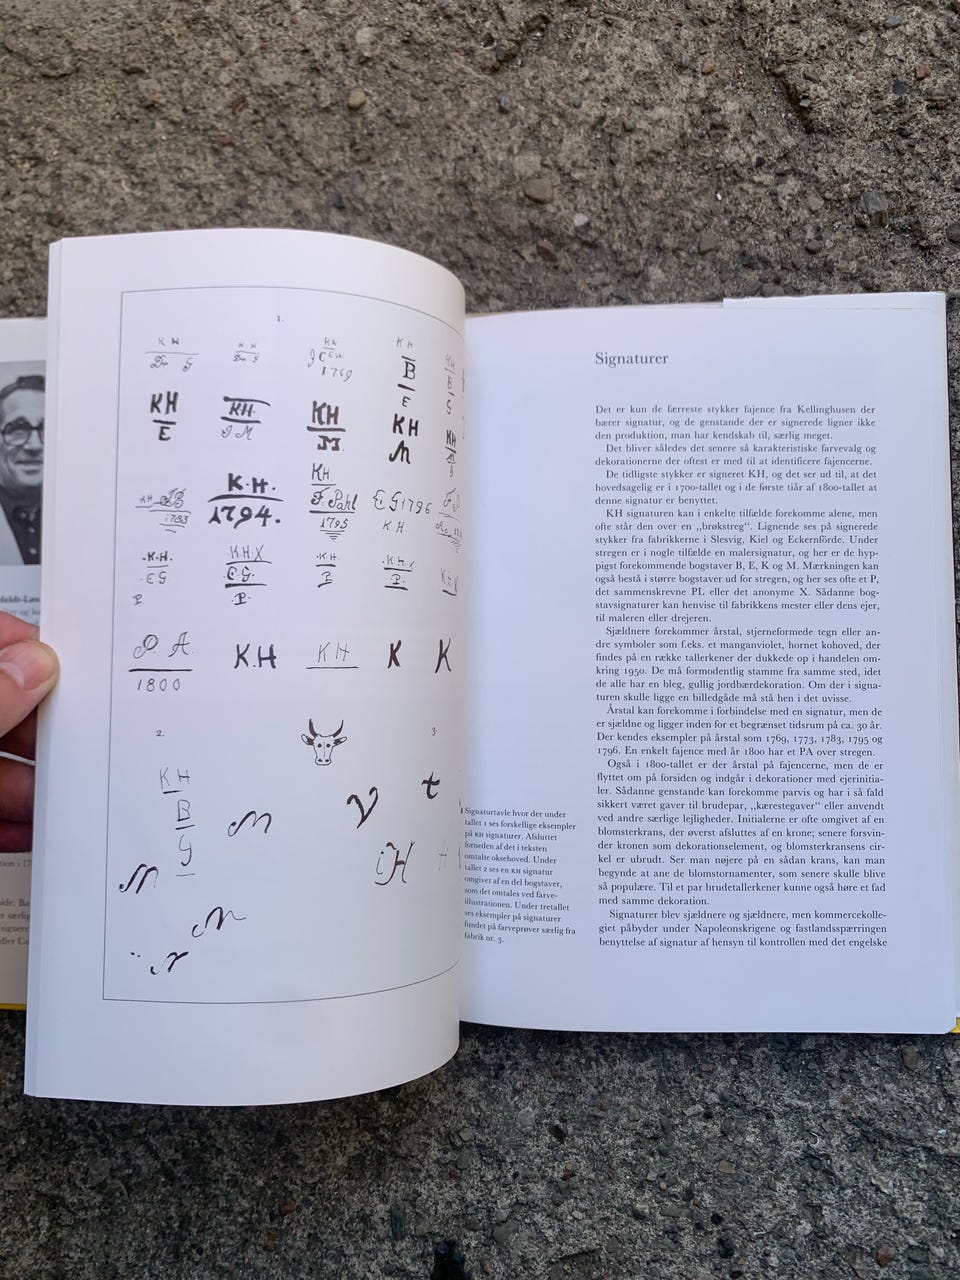 1.
KH
KH
KH
1769
KH
B
E
KH
E
KH.
J M
KH
M.
KH
M
1783
K.H.
1794.
KH
F. Pahl
1795
E G 1796
K H
.K.H.
.C G
P
K.H.X
C.G.
.P.
.K.H.
P
.K.H.X
P.
P. A.
1800
K.H
KH
K
K
2.
3.
KH
B
G
M
V
t
H
feldt-Lau
Signaturer
Det er kun de færreste stykker fajence fra Kellinghusen der
bærer signatur, og de genstande der er signerede ligner ikke
den produktion, man har kendskab til, særlig meget.
Det bliver således det senere så karakteristiske farvevalg og
dekorationerne der oftest er med til at identificere fajencerne.
De tidligste stykker er signeret KH, og det ser ud til, at det
hovedsagelig er i 1700-tallet og i de første tiår af 1800-tallet at
denne signatur er benyttet.
KH signaturen kan i enkelte tilfælde forekomme alene, men
ofte står den over en „brøkstreg“. Lignende ses på signerede
stykker fra fabrikkerne i Slesvig, Kiel og Eckernförde. Under
stregen er i nogle tilfælde en malersignatur, og her er de hyp-
pigst forekommende bogstaver B, E, K og M. Mærkningen kan
også bestå i større bogstaver ud for stregen, og her ses ofte et P,
det sammenskrevne PL eller det anonyme X. Sådanne bog-
stavsignaturer kan henvise til fabrikkens mester eller dens ejer,
til maleren eller drejeren.
Sjældnere forekommer årstal, stjerneformede tegn eller an-
dre symboler som f.eks. et manganviolet, hornet kohoved, der
findes på en række tallerkener der dukkede op i handelen om-
kring 1950. De må formodentlig stamme fra samme sted, idet
de alle har en bleg, gullig jordbærdekoration. Om der i signa-
turen skulle ligge en billedgåde må stå hen i det uvisse.
Årstal kan forekomme i forbindelse med en signatur, men de
er sjældne og ligger inden for et begrænset tidsrum på ca. 30 år.
Der kendes eksempler på årstal som 1769, 1773, 1783, 1795 og
1796. En enkelt fajence med år 1800 har et PA over stregen.
Også i 1800-tallet er der årstal på fajencerne, men de er
flyttet om på forsiden og indgår i dekorationer med ejerinitia-
ler. Sådanne genstande kan forekomme parvis og har i så fald
sikkert været gaver til brudepar, „kærestegaver“ eller anvendt
ved andre særlige lejligheder. Initialerne er ofte omgivet af en
blomsterkrans, der øverst afsluttes af en krone; senere forsvin-
der kronen som dekorationselement, og blomsterkransens cir-
kel er ubrudt. Ser man nøjere på en sådan krans, kan man
begynde at ane de blomstornamenter, som senere skulle blive
så populære. Til et par brudetallerkener kunne også høre et fad
med samme dekoration.
Signaturer blev sjældnere og sjældnere, men kommercekolle-
giet påbyder under Napoleonskrigene og fastlandsspærringen
benyttelse af signatur af hensyn til kontrollen med det engelske
Signaturtavle hvor der under
tallet 1 ses forskellige eksempler
på KH signaturer. Afsluttet
forneden af det i teksten
omtalte oksehoved. Under
tallet 2 ses en KH signatur
omgivet af en del bogstaver,
som det omtales ved farve-
illustrationen. Under tretallet
ses eksempler på signaturer
fundet på farveprøver særlig fra
fabrik nr. 3.